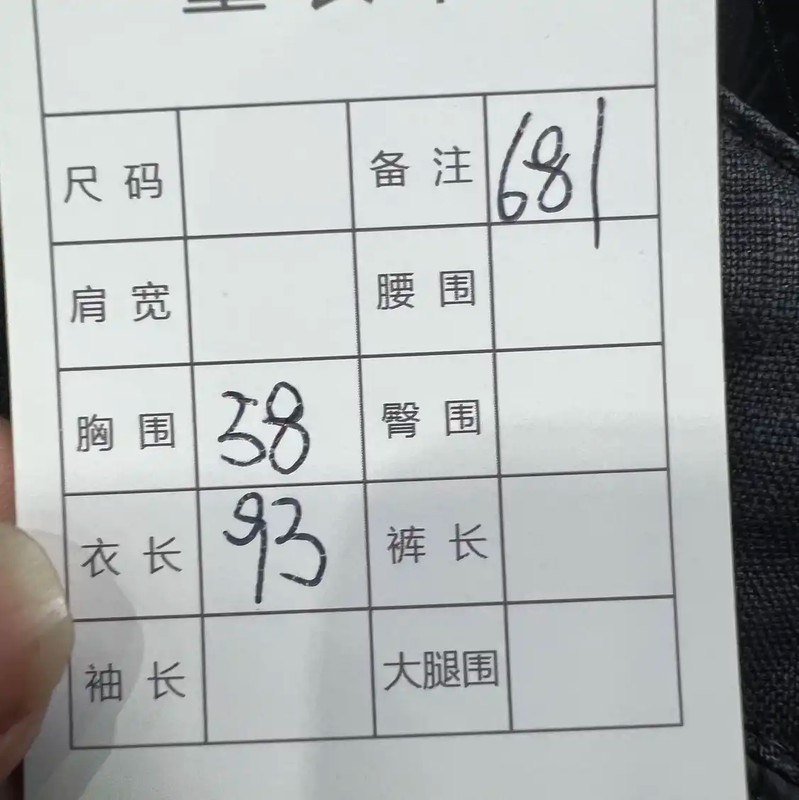 尺码 备注 681
肩宽 腰围
胸围 58 臀围
衣长 93 裤长
袖长 大腿围